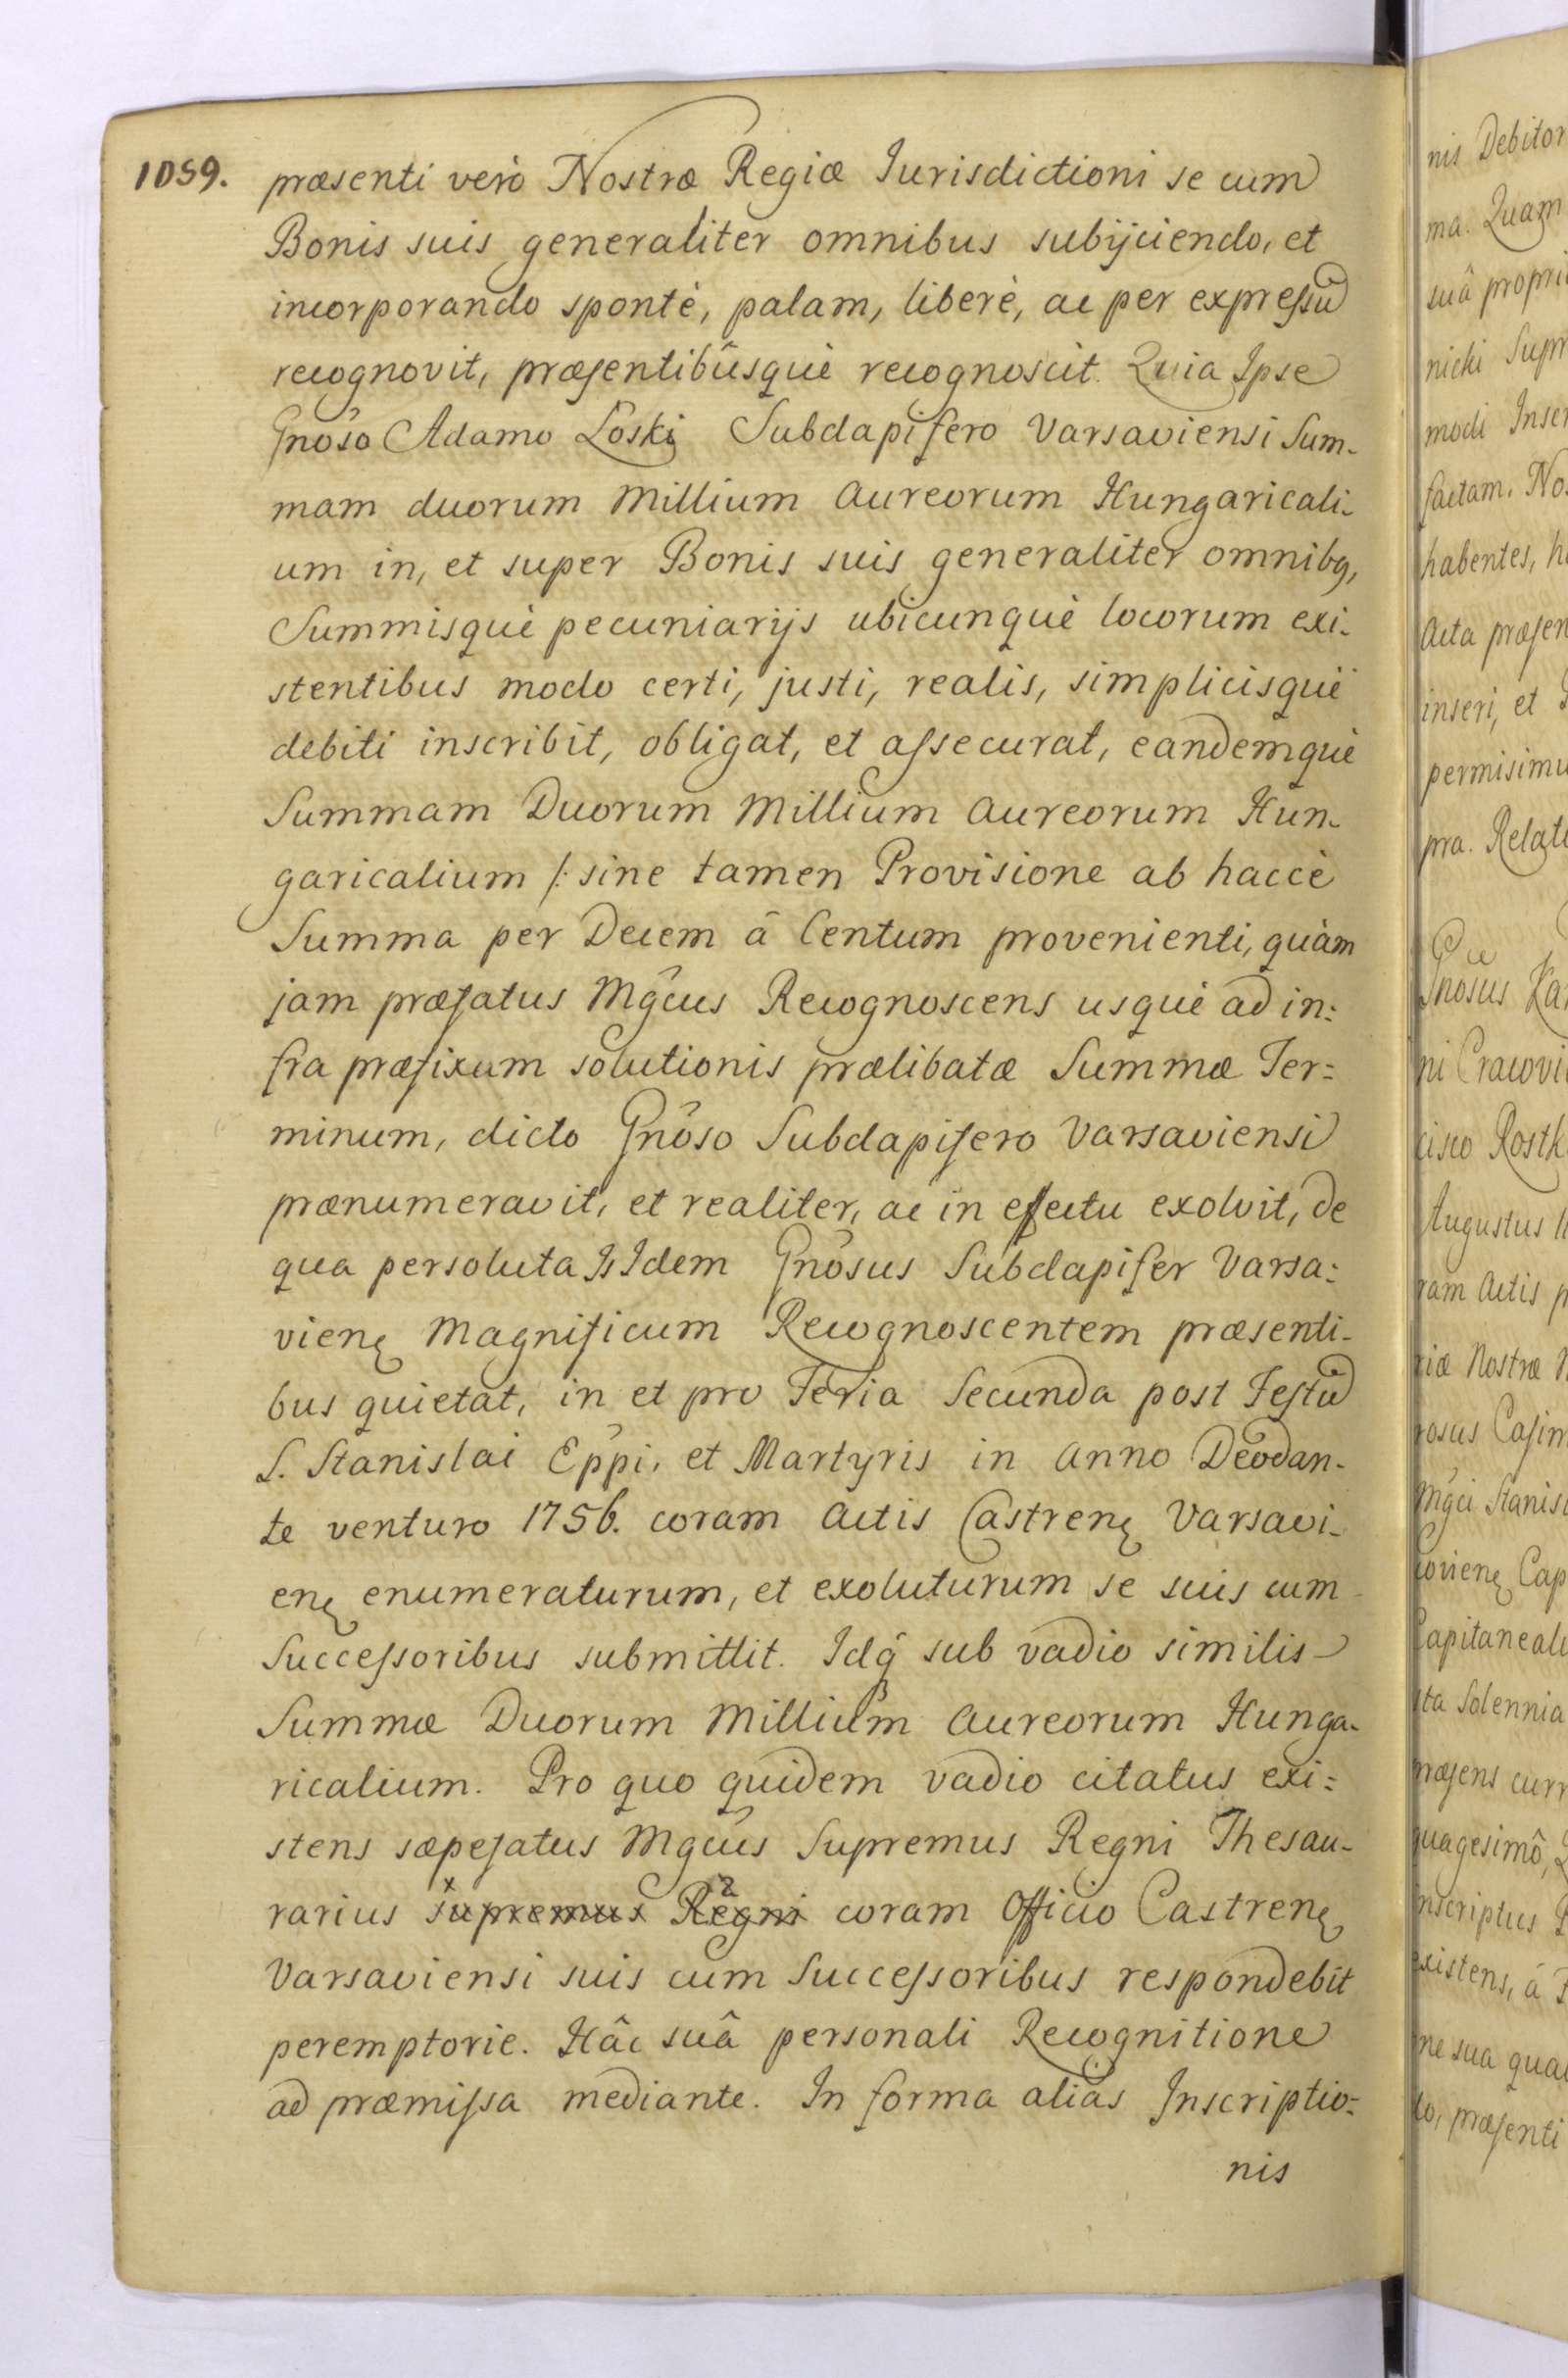 1059.
præsenti verò Nostræ Regiæ Iurisdictioni se cum
Bonis suis generaliter omnibus subijciendo, et
incorporando spontè, palam, liberè, ac per expreſsū
recognovit, præsentibûsquè recognoscit. Quia Ipse
Gnôso Adamo Łoski Subdapifero Varsaviensi Sum-
mam duorum Millium Aureorum Hungaricali-
um in, et super Bonis suis generaliter omnibq,
Summisquè pecuniarijs ubicunquè locorum exi-
stentibus modo certi, justi, realis, simplicisquè
debiti inscribit, obligat, et aſsecurat, eandemquè
Summam Duorum Millium Aureorum Hun-
garicalium /: sine tamen Provisione ab haccè
Summa per Decem â Centum provenienti, quàm
jam præfatus Mgcûs Recognoscens usquè ad in:
fra præfixum solutionis prælibatæ Summæ Ter=
minum, dicto Gnôso Subdapifero Varsaviensi
prænumeravit, et realiter, ac in effectu exolvit, de
qua persoluta Is Idem Gnôsus Subdapifer Varsa:
vienę Magnificum Recognoscentem præsenti-
bus quietat, in et pro Feria Secunda post Festū
S. Stanislai Eppi, et Martyris in Anno Deôdan-
te venturo 1756. coram Actis Castrenę Varsavi-
enę enumeraturum, et exoluturum se suis cum
Succeſsoribus submittit. Idq̂ sub vadio similis
Summæ Duorum Millium Aureorum Hunga-
ricalium. Pro quo quidem vadio citatus exi=
stens sæpefatus Mgcûs Supremus Regni Thesau-
rarius supremus Regni coram Officio Castrenę
Varsaviensi suis cum Succeſsoribus respondebit
peremptorie. Hâc suâ personali Recognitione
ad præmiſsa mediante. In forma aliàs Inscriptio=
nis
nis Debitor
ma. Quam
suâ propri
nicki Supr
modi Inscr
factam. No
habentes, h
Acta præsen
inseri, et
permisimu
pra. Relat
Gnôsus Ka
ni Cracovi
cisco Rostk
Augustus
ram Actis p
riæ Nostræ
rosus Casim
Mgci Stanis
covienę Cap
Capitaneal
sta Solennia
præsens curr
quagesimô,
Inscriptus
existens, â
ne sua qua
to, præsenti